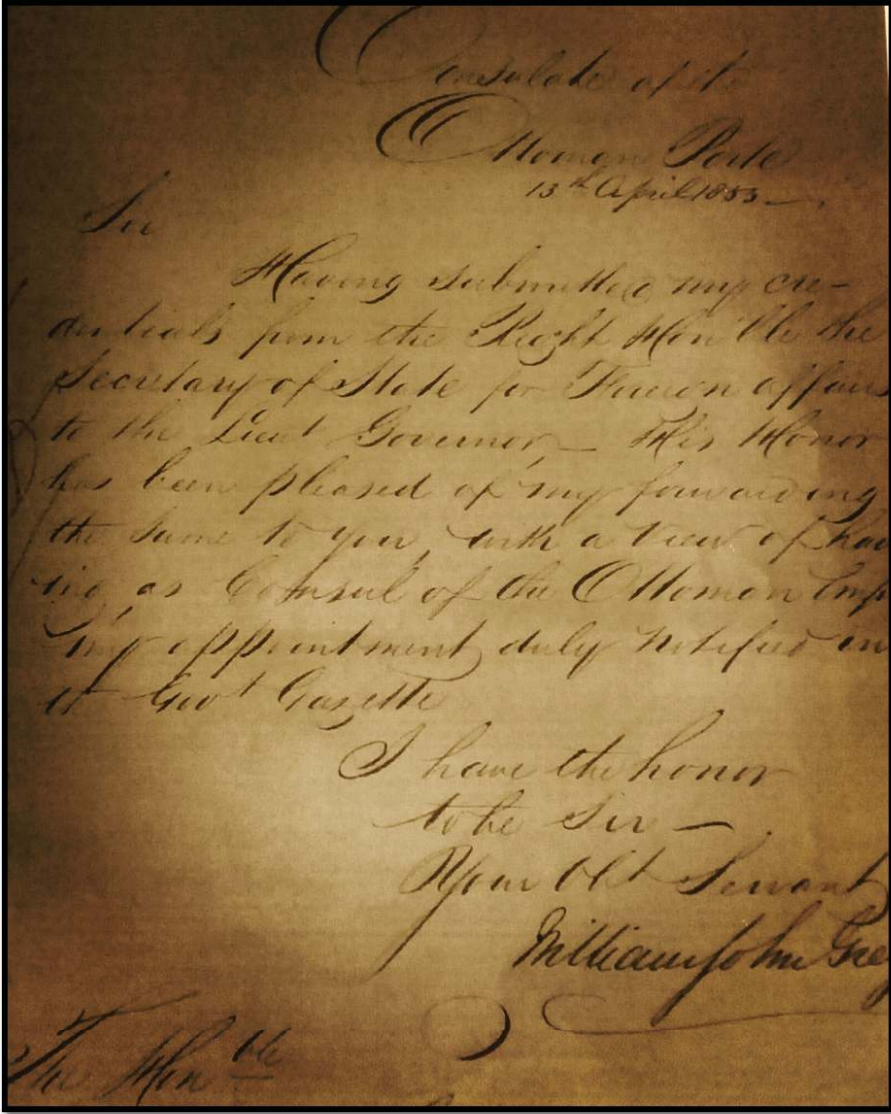 Consulate of the
Ottoman Porte
13th April 1853
Sir
Having submitted my cre-
dentials from the Right Hon'ble the
Secretary of State for Foreign affairs
to the Lieut Governor, — His Honor
has been pleased of my forwarding
the same to you, with a view of hav
ing as Consul of the Ottoman Emp
my appointment duly notified in
Govt Gazette
I have the honor
to be Sir —
Your Obt Servant
William John Gre
The Honble